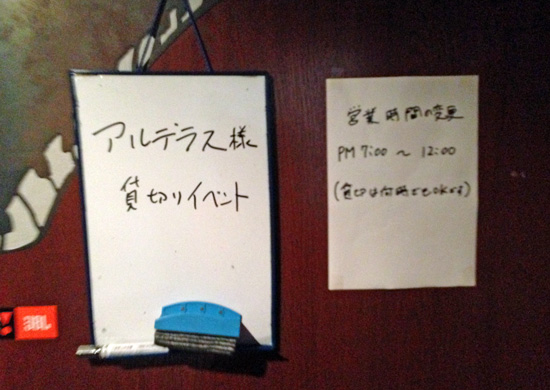 アルデラス様
貸切りイベント
営業時間の変更
PM 7:00 ～ 12:00
(貸切は何時でもOKです)
JBL